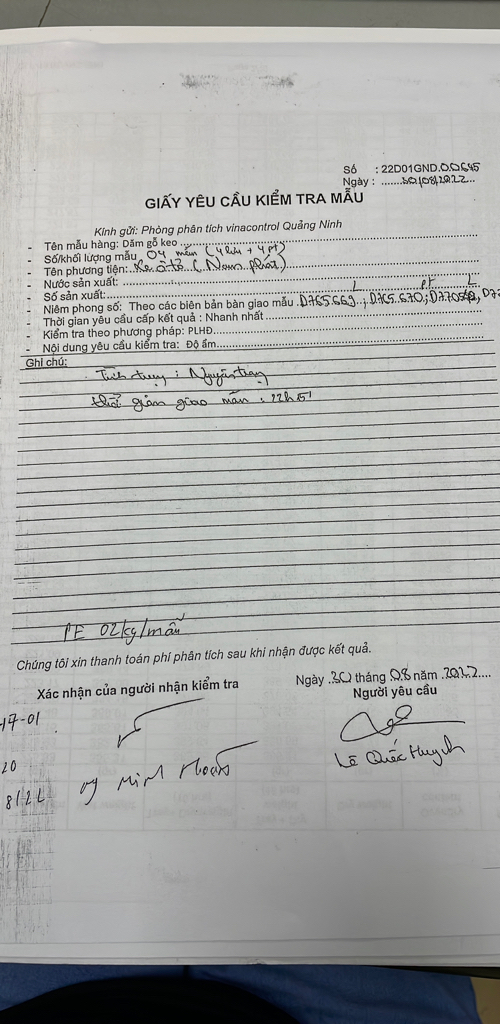 Số : 22D01GND.00645
Ngày : ......30/08/2022...
GIẤY YÊU CẦU KIỂM TRA MẪU
Kính gửi: Phòng phân tích vinacontrol Quảng Ninh
- Tên mẫu hàng: Dăm gỗ keo
- Số/khối lượng mẫu 04 mẫu (4 lưu + 4 pt)
- Tên phương tiện: Xe ô tô (Nam phát)
- Nước sản xuất:
- Số sản xuất:
L pt L
- Niêm phong số: Theo các biên bản bàn giao mẫu D765.669; D765.670;
- Thời gian yêu cầu cấp kết quả : Nhanh nhất
- Kiểm tra theo phương pháp: PLHD
- Nội dung yêu cầu kiểm tra: Độ ẩm
Ghi chú:
gian giao mẫu :
PE 02kg/mẫu
Chúng tôi xin thanh toán phí phân tích sau khi nhận được kết quả.
Ngày .30 tháng 08 năm .2022....
Xác nhận của người nhận kiểm tra
Người yêu cầu
17-01
Lê Quốc Huynh
20
Minh
8/22